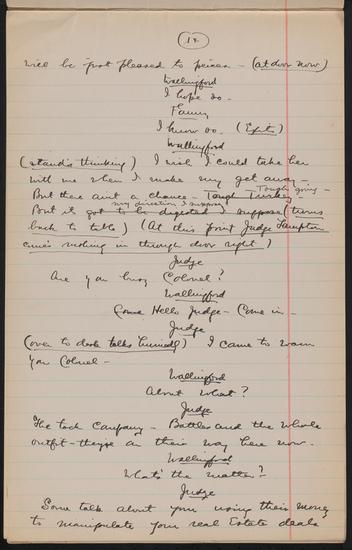 12
will be just pleased to pieces - (at door now)
Wallingford
I hope so.
Fanny
I know so. (Exits)
Wallingford
(stands thinking) I wish I could take her
with me when I make my get away -
Tough going -
But there aint a chance - Tough Turkey -
my direction I suppose
But it got to be digested I suppose (turns
back to table) (At this point Judge Lampton
comes rushing in through door right)
Judge
Are you busy Colonel?
Wallingford
Come Hello Judge - Come in -
Judge
(over to desk talks hurriedly) I came to warn
you Colonel -
Wallingford
About what?
Judge
The tack Company - Battles and the whole
outfit - they're on their way here now.
Wallingford
What's the matter?
Judge
Some talk about you using their money
to manipulate your real Estate deals